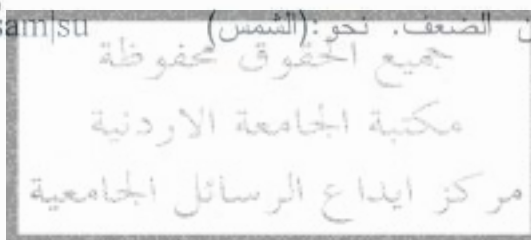 الضعف. نحو:(الشمس) sam|su
جميع الحقوق محفوظة
مكتبة الجامعة الاردنية
مركز ايداع الرسائل الجامعية